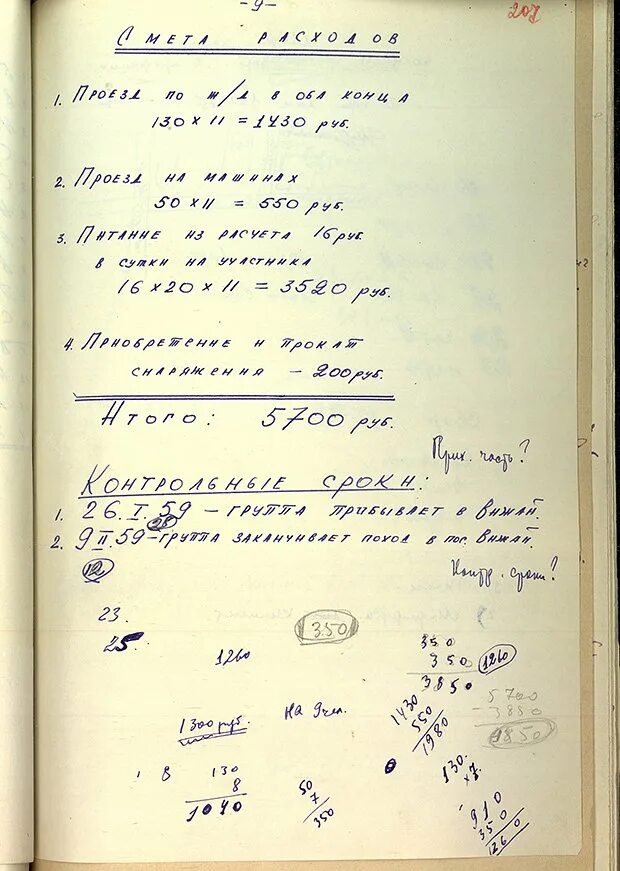 -9-
207
СМЕТА РАСХОДОВ
1. ПРОЕЗД ПО Ж/Д В ОБА КОНЦА
130 x 11 = 1430 РУБ.
2. ПРОЕЗД НА МАШИНАХ
50 x 11 = 550 РУБ.
3. ПИТАНИЕ ИЗ РАСЧЕТА 16 РУБ.
В СУТКИ НА УЧАСТНИКА
16 x 20 x 11 = 3520 РУБ.
4. ПРИОБРЕТЕНИЕ И ПРОКАТ
СНАРЯЖЕНИЯ - 200 РУБ.
ИТОГО: 5700 РУБ.
Прих. часть?
КОНТРОЛЬНЫЕ СРОКИ:
1. 26.I.59 - ГРУППА ПРИБЫВАЕТ В ВИЖАЙ.
28
2. 9 II.59 - ГРУППА ЗАКАНЧИВАЕТ ПОХОД В ПОС. ВИЖАЙ.
12
Контр. сроки?
23.
25.
350
1260
350
350
3850
1260
1300 руб.
На 9 чел.
1430
550
1980
5700
- 3850
1850
В 130
8
1040
50
7
350
130.
x7.
910
350
1260